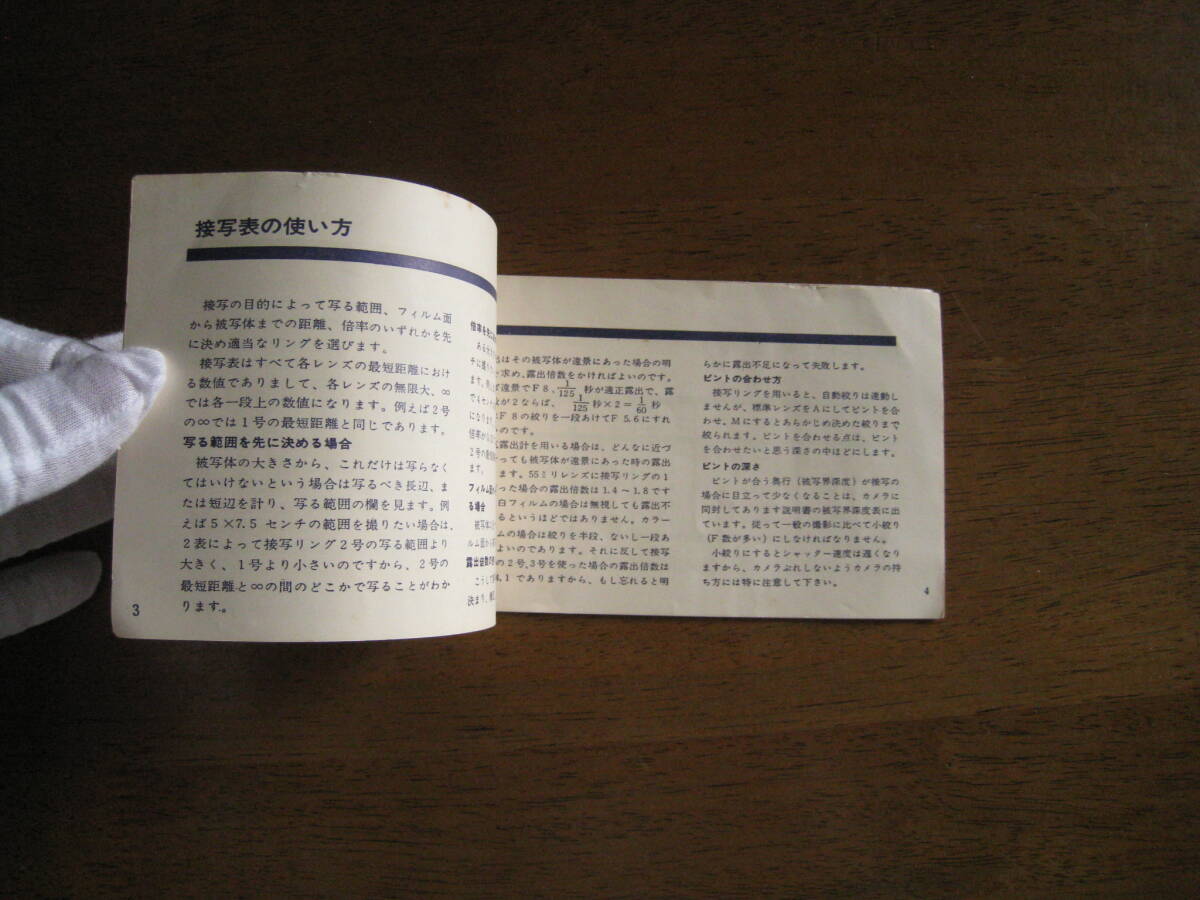 接写表の使い方
接写の目的によって写る範囲、フィルム面
から被写体までの距離、倍率のいずれかを先
に決め適当なリングを選びます。
接写表はすべて各レンズの最短距離におけ
る数値でありまして、各レンズの無限大、∞
では各一段上の数値になります。例えば2号
の∞では1号の最短距離と同じであります。
写る範囲を先に決める場合
被写体の大きさから、これだけは写らなく
てはいけないという場合は写るべき長辺、ま
たは短辺を計り、写る範囲の欄を見ます。例
えば5×7.5 センチの範囲を撮りたい場合は、
2表によって接写リング2号の写る範囲より
大きく、1号より小さいのですから、2号の
最短距離と∞の間のどこかで写ることがわか
ります。
3
倍率を先に
ある
チに
で4セン
になり
倍率か
2号の
ます。
フィルム面
る場合
被写体
ルム面か
露出倍数
こうし
決まり、
はその被写体が遠景にあった場合の明
求め、露出倍数をかければよいのです。
ば遠景でF8、1/125 秒が適正露出で、露
が2ならば、1/125 秒×2=1/60 秒
F 8 の絞りを一段あけてF 5.6にすれ
いのです。
露出計を用いる場合は、どんなに近づ
っても被写体が遠景にあった時の露出
ます。55ミリレンズに接写リングの1
った場合の露出倍数は1.4～1.8です
白フィルムの場合は無視しても露出不
るというほどではありません。カラー
ムの場合は絞りを半段、ないし一段あ
よいのであります。それに反して接写
の2号、3号を使った場合の露出倍数は
4.1 でありますから、もし忘れると明
らかに露出不足になって失敗します。
ピントの合わせ方
接写リングを用いると、自動絞りは連動し
ませんが、標準レンズをAにしてピントを合
わせ、Mにするとあらかじめ決めた絞りまで
絞られます。ピントを合わせる点は、ピント
を合わせたいと思う深さの中ほどにします。
ピントの深さ
ピントが合う奥行(被写界深度)が接写の
場合に目立って少なくなることは、カメラに
同封してあります説明書の被写界深度表に出
ています。従って一般の撮影に比べて小絞り
(F 数が多い)にしなければなりません。
小絞りにするとシャッター速度は遅くなり
ますから、カメラぶれしないようカメラの持
ち方には特に注意して下さい。
4